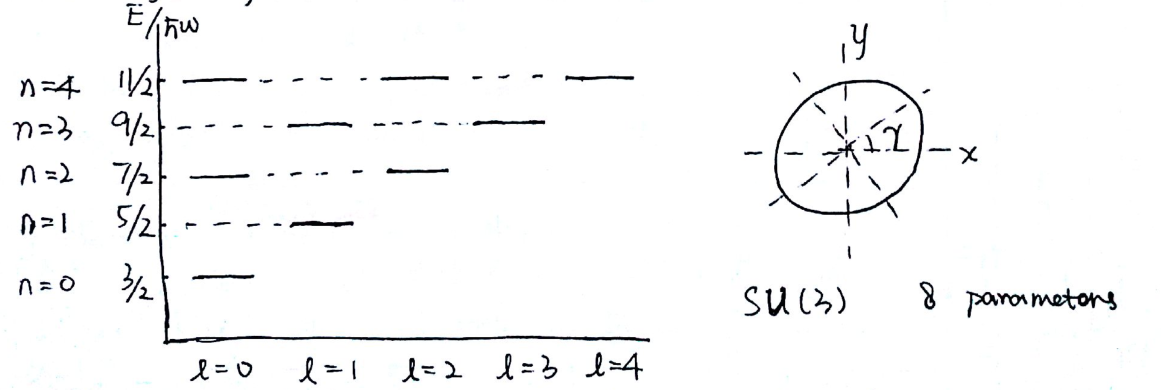 E/ħω
n=4 11/2
n=3 9/2
n=2 7/2
n=1 5/2
n=0 3/2
l=0 l=1 l=2 l=3 l=4
y
x
SU(3) 8 parameters